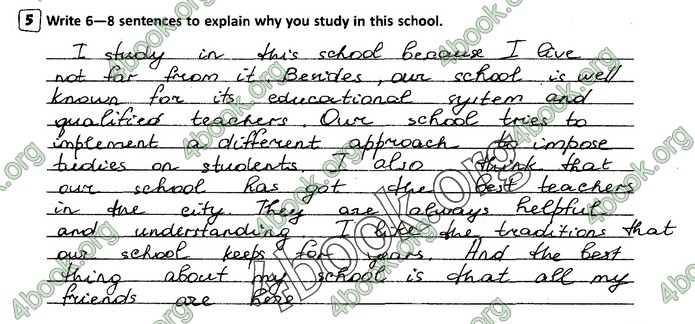 5 Write 6—8 sentences to explain why you study in this school.
I study in this school because I live
not far from it. Besides, our school is well
known for its educational system and
qualified teachers. Our school tries to
implement a different approach to impose
tudies on students. I also think that
our school has got the best teachers
in the city. They are always helpful
and understanding. I like the traditions that
our school keeps for years. And the best
thing about my school is that all my
friends are here
4book.org